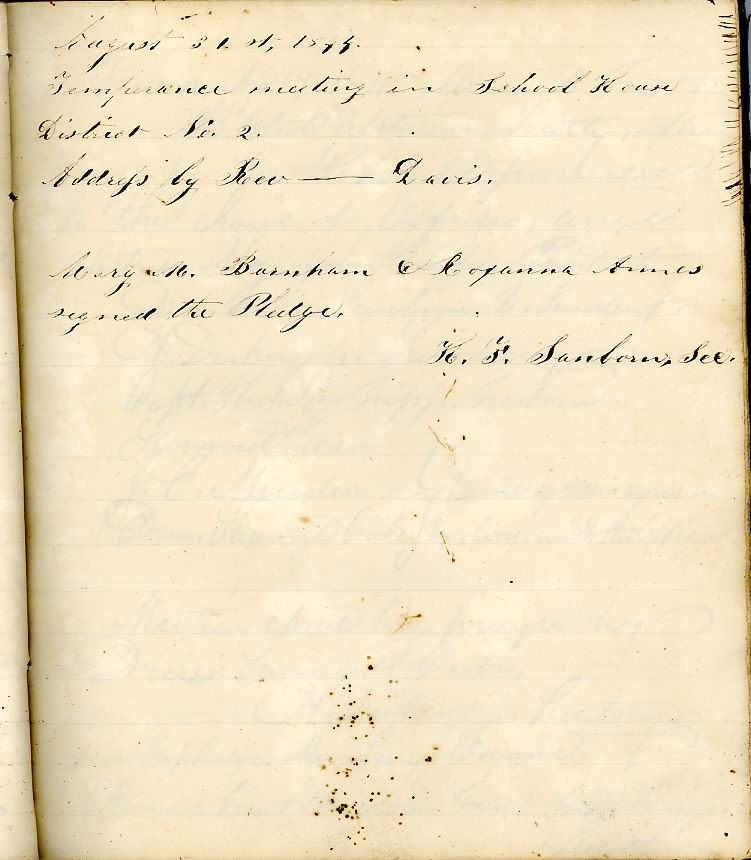 August 31st, 1844.
Temperance meeting in School House
District No. 2.
Address by Rev —— Davis.
Mary M. Barnham & Roxanna Annes
signed the Pledge.
H. F. Sanborn, Sec.